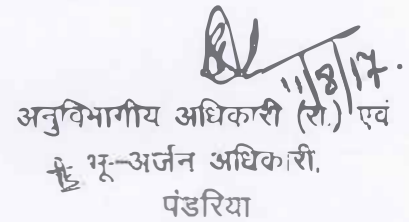 11/8/17.
अनुविभागीय अधिकारी (रा.) एवं
भू-अर्जन अधिकारी,
पंडरिया